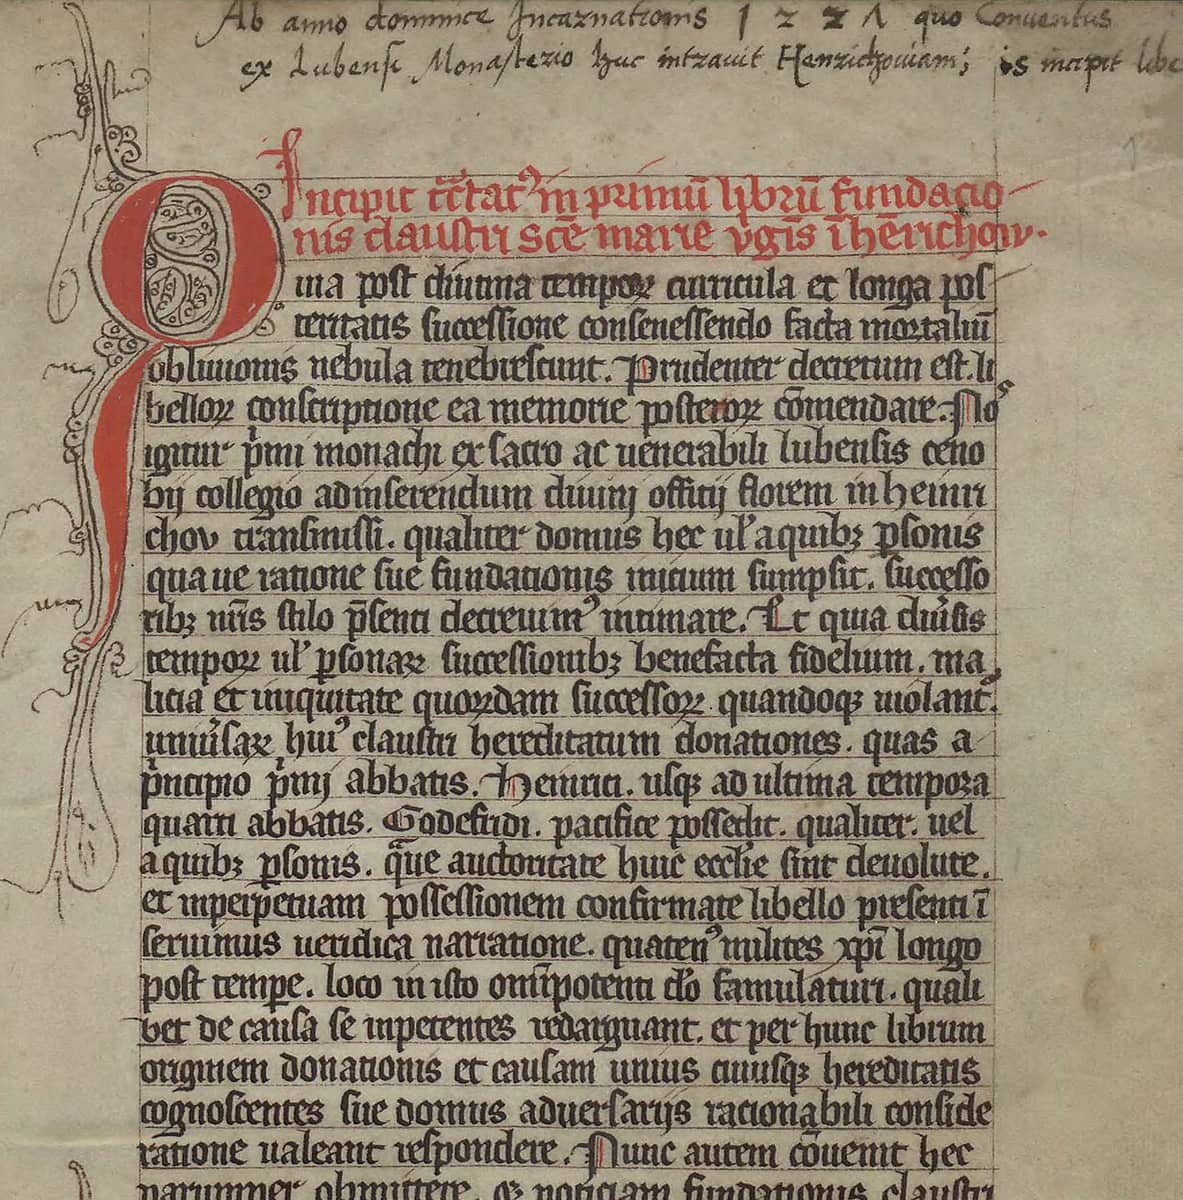 Ab anno dominice Incarnationis 1 2 2 1 quo Conventus
ex Lubensi Monasterio huc intravit Henrichoviam; is incipit libe
Incipit tc̄tatꝰ in primū librū fundacio-
nis claustri sc̄e marie ỽgīs ī hēricħow.
Quia post diutina tempoꝝ curricula et longa pos
teritatis successione consenessendo facta mortaliū
obliuionis nebula tenebrescunt. Prudenter decretum est. li
belloꝝ conscriptione ea memorie posteroꝝ cōmendare. Noˢ
igitur pͥmi monachi ex sacro ac uenerabili lubensis ceno
bij collegio ad inserendum diuinj officij florem in heinri
chov transmissi. qualiter domus hec ul' a quibꝫ ꝑsonis
qua ue ratione sue fundationis inicium sumpsit. successo
ribꝫ nr̄is stilo p̄senti decreuimꝰ intimare. Et quia diu͛sis
tempoꝝ ul' ꝑsonaꝝ successionibꝫ benefacta fidelium. ma
licia et iniquitate quoꝝdam successoꝝ quandoqꝫ uiolant᷑.
uniu͛saꝝ huiꝰ claustri hereditatum donationes. quas a
pͥncipio pͥmj abbatis. Heinrici. usqꝫ ad ultima tempora
quarti abbatis. Godefridi. pacifice possedit. qualiter. uel
a quibꝫ ꝑsonis. qᷓue auctoritate huic eccl'ie sint deuolute.
et inperpetuam possessionem confirmate libello presenti ī
seruimus ueridica narratione. quatenꝰ milites xp̄i longo
post tempe. loco in isto omīpotenti d'o famulaturi. quali
bet de causa se inpetentes redarguant. et per hunc librum
originem donationis et causam unius cuiusqꝫ hereditatis
cognoscentes sue domus aduersarijs racionabili conside
ratione ualeant respondere. Nunc autem cōuenit hec
parumper obmittere. et noticiam fundationis claustri